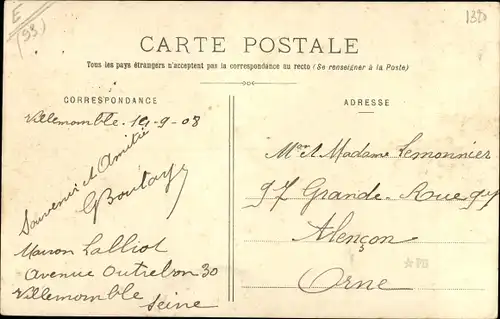 E
(93)
1320
CARTE POSTALE
Tous les pays étrangers n'acceptent pas la correspondance au recto (Se renseigner à la Poste)
CORRESPONDANCE
Villemomble. 19-9-08
Souvenir et Amitié
GBoulay
Maison Lalliot
Avenue Outrebon 30
Villemomble
Seine
ADRESSE
Mr et Madame Lemonnier
97 Grande-Rue 97
Alençon
PB
Orne